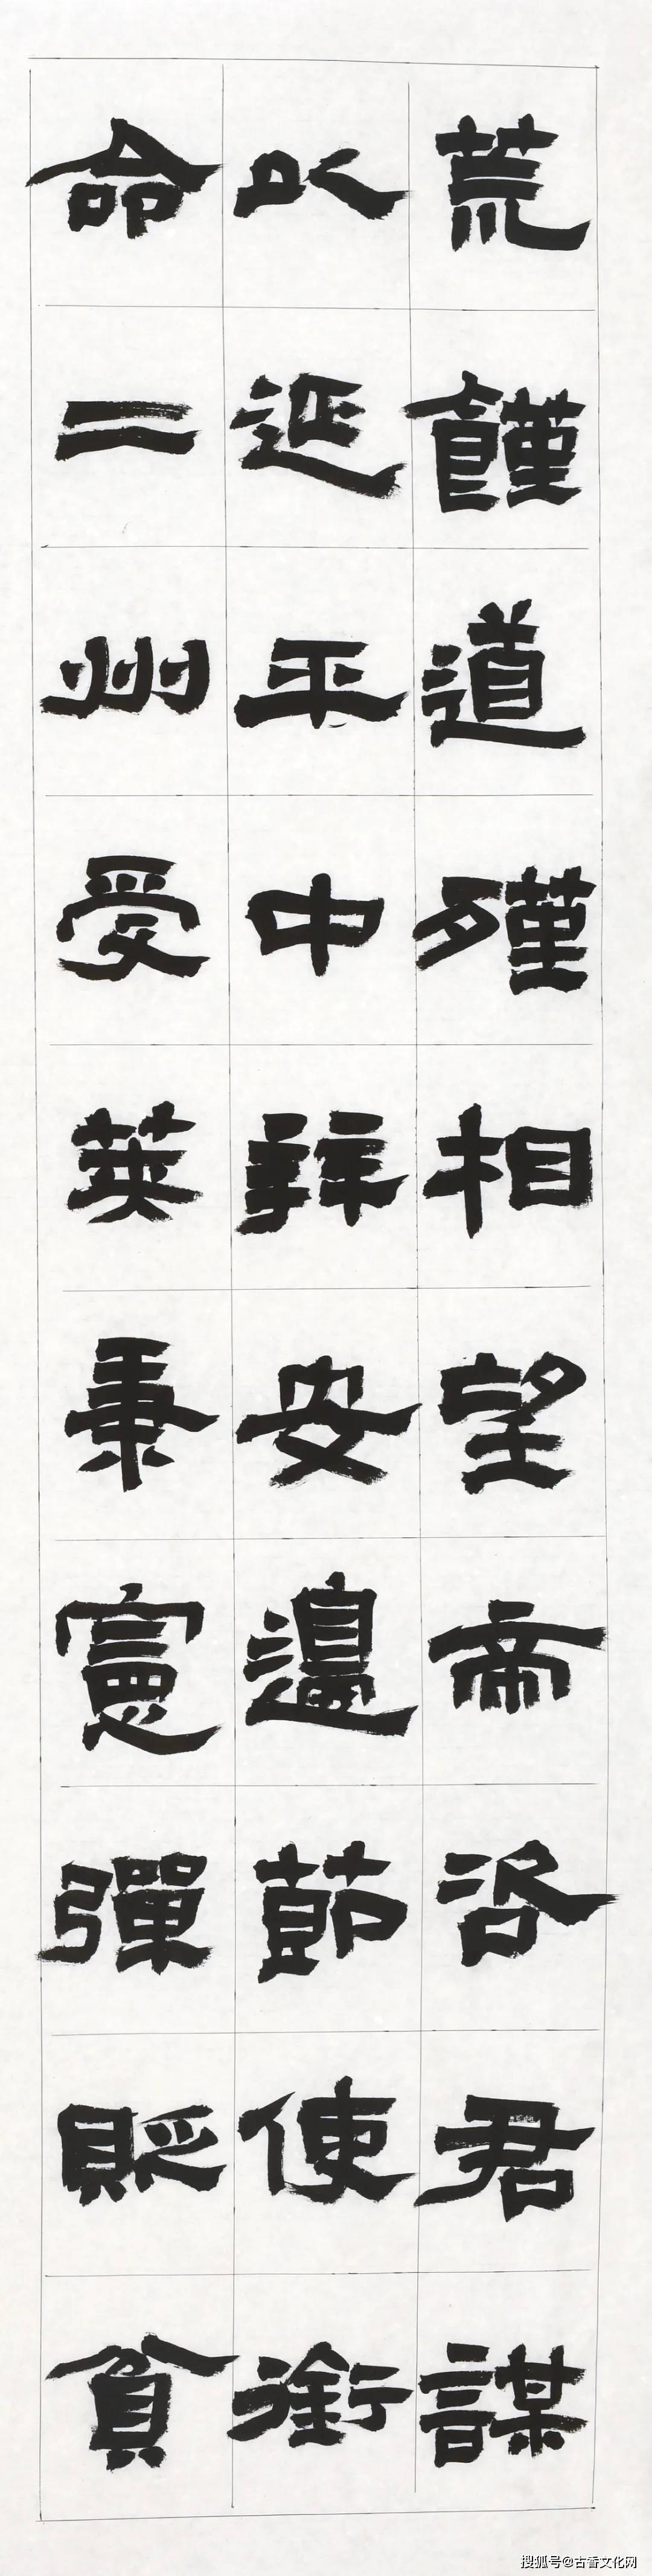 荒饉道殣相望帝咨君謀
以延平中拜安邊節使銜
命二州受莢秉憲彈貶貪
搜狐号@古香文化网